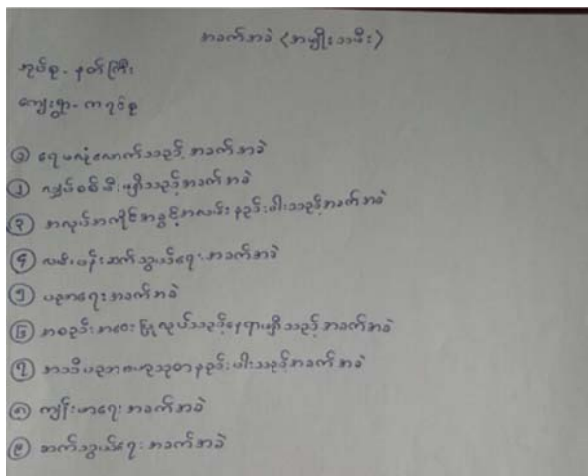 အခက်အခဲ (အမျိုးသမီး)
အုပ်စု - နတ်ကြီး
ကျေးရွာ - ကရင်စု
၁ ရေမလုံလောက်သည့် အခက်အခဲ
၂ လျှပ်စစ်မီးမရှိသည့်အခက်အခဲ
၃ အလုပ်အကိုင်အခွင့်အလမ်းနည်းပါးသည့်အခက်အခဲ
၄ လမ်းပန်းဆက်သွယ်ရေးအခက်အခဲ
၅ ပညာရေးအခက်အခဲ
၆ အစည်းအဝေးပြုလုပ်သည့်နေရာမရှိသည့်အခက်အခဲ
၇ အသိပညာဗဟုသုတနည်းပါးသည့်အခက်အခဲ
၈ ကျန်းမာရေးအခက်အခဲ
၉ ဆက်သွယ်ရေးအခက်အခဲ